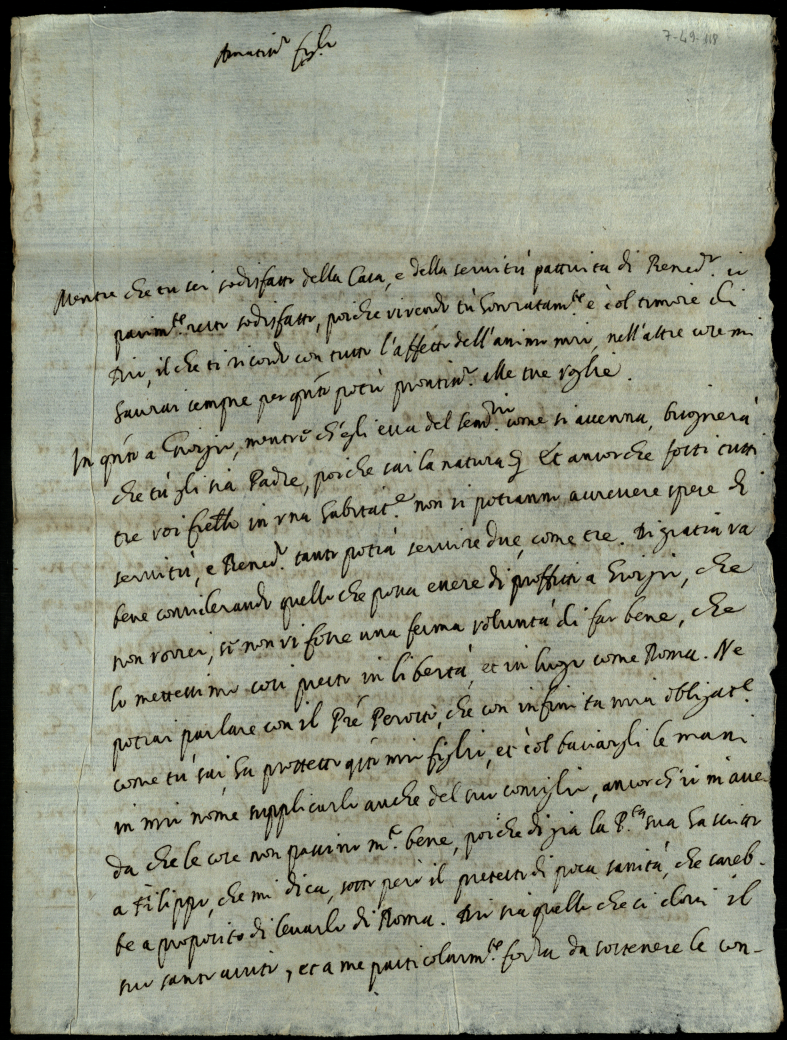 7-49-118
Amatis.r figlio
Mentre che tu sei sodisfatto della Casa, e della servitù pattuita di Bened.r io
parim.te resto sodisfatto, poiche vivendo tù honoratam.te e col timore di
Dio, il che ti ricordo con tutto l'affetto dell'animo mio, nell'altre cose mi
haverai sempre per q.to potrò prontis.r alle tue voglie.
In q.to a Giorgio, mentre ch'egli esca del Sem.rio come si accenna, bisognerà
che tù gli sia Padre, poiche sai la natura Et ancor che fosti tutti
tre voi fr̃elli in una habitat.e non si potranno accrescere spese di
servitù, e Bened.r tanto potrà servire due, come tre. Di gratia va
bene considerando quello che possa essere di proffitto a Giorgio, che
non vorrei, se non vi fosse una ferma volontà di far bene, che
lo mettessimo così presto in libertà, et in luogo come Roma. Ne
potrai parlare con il Pr̃e Perotti, che con infinita mia obligat.e
come tù sai hà protetto q.to mio figlio, et col baciargli le mani
in mio nome supplicarlo anche del suo consiglio, ancorch'io m'ave-
da che le cose non passino m.to bene, poiche di già la P.tà sua ha scritto
a Filippo, che mi dica, sotto però il pretesto di poca sanità, che sareb-
be a proposito di levarlo di Roma. Dio sia quello che ci doni il
suo santo aiuto, et a me particolarm.te forza da sostenere le con-